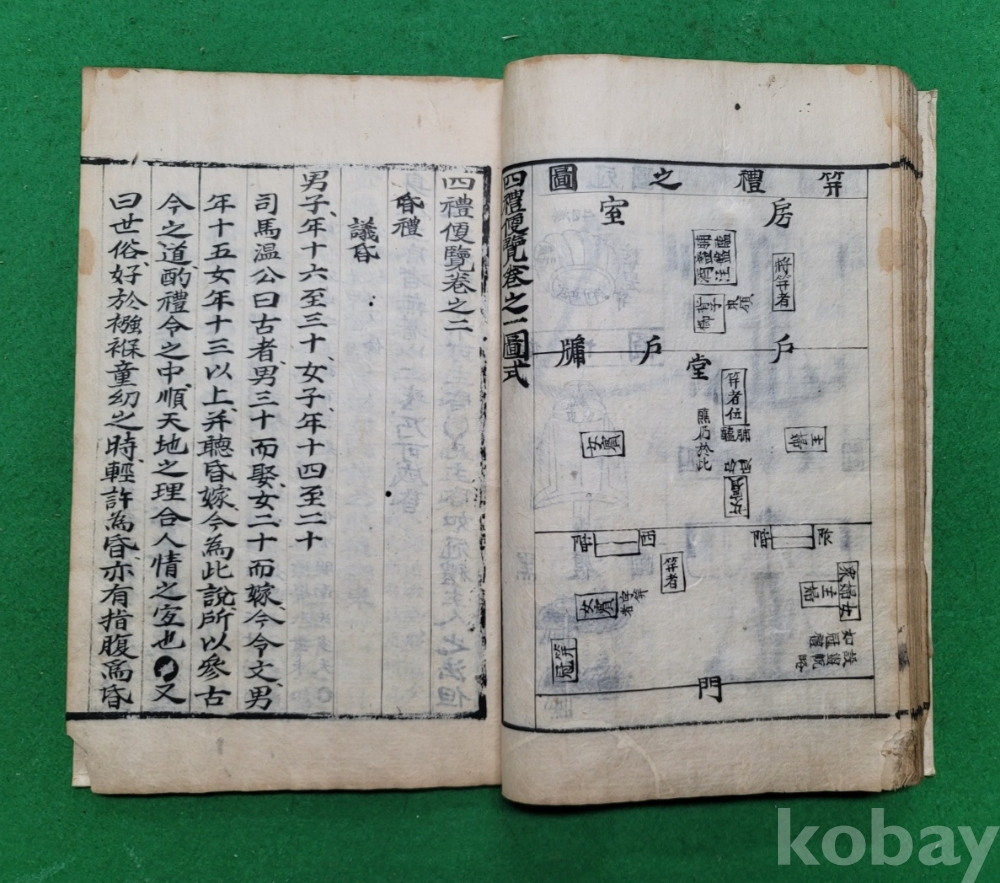 笄禮之圖
房
室
將笄者
戶
戶
牖
堂
笄者位
醮乃於此
主婦
女賓
女賓
阼階
西階
笄者
女賓
衆婦女
主婦
冠笄
門
四禮便覽卷之一圖式
四禮便覽卷之二
昏禮
議昏
男子年十六至三十女子年十四至二十
司馬溫公曰古者男三十而娶女二十而嫁今令文男
年十五女年十三以上并聽昏嫁今為此說所以參古
今之道酌禮令之中順天地之理合人情之宜也○又
曰世俗好於襁褓童幼之時輕許為昏亦有指腹為昏
kobay